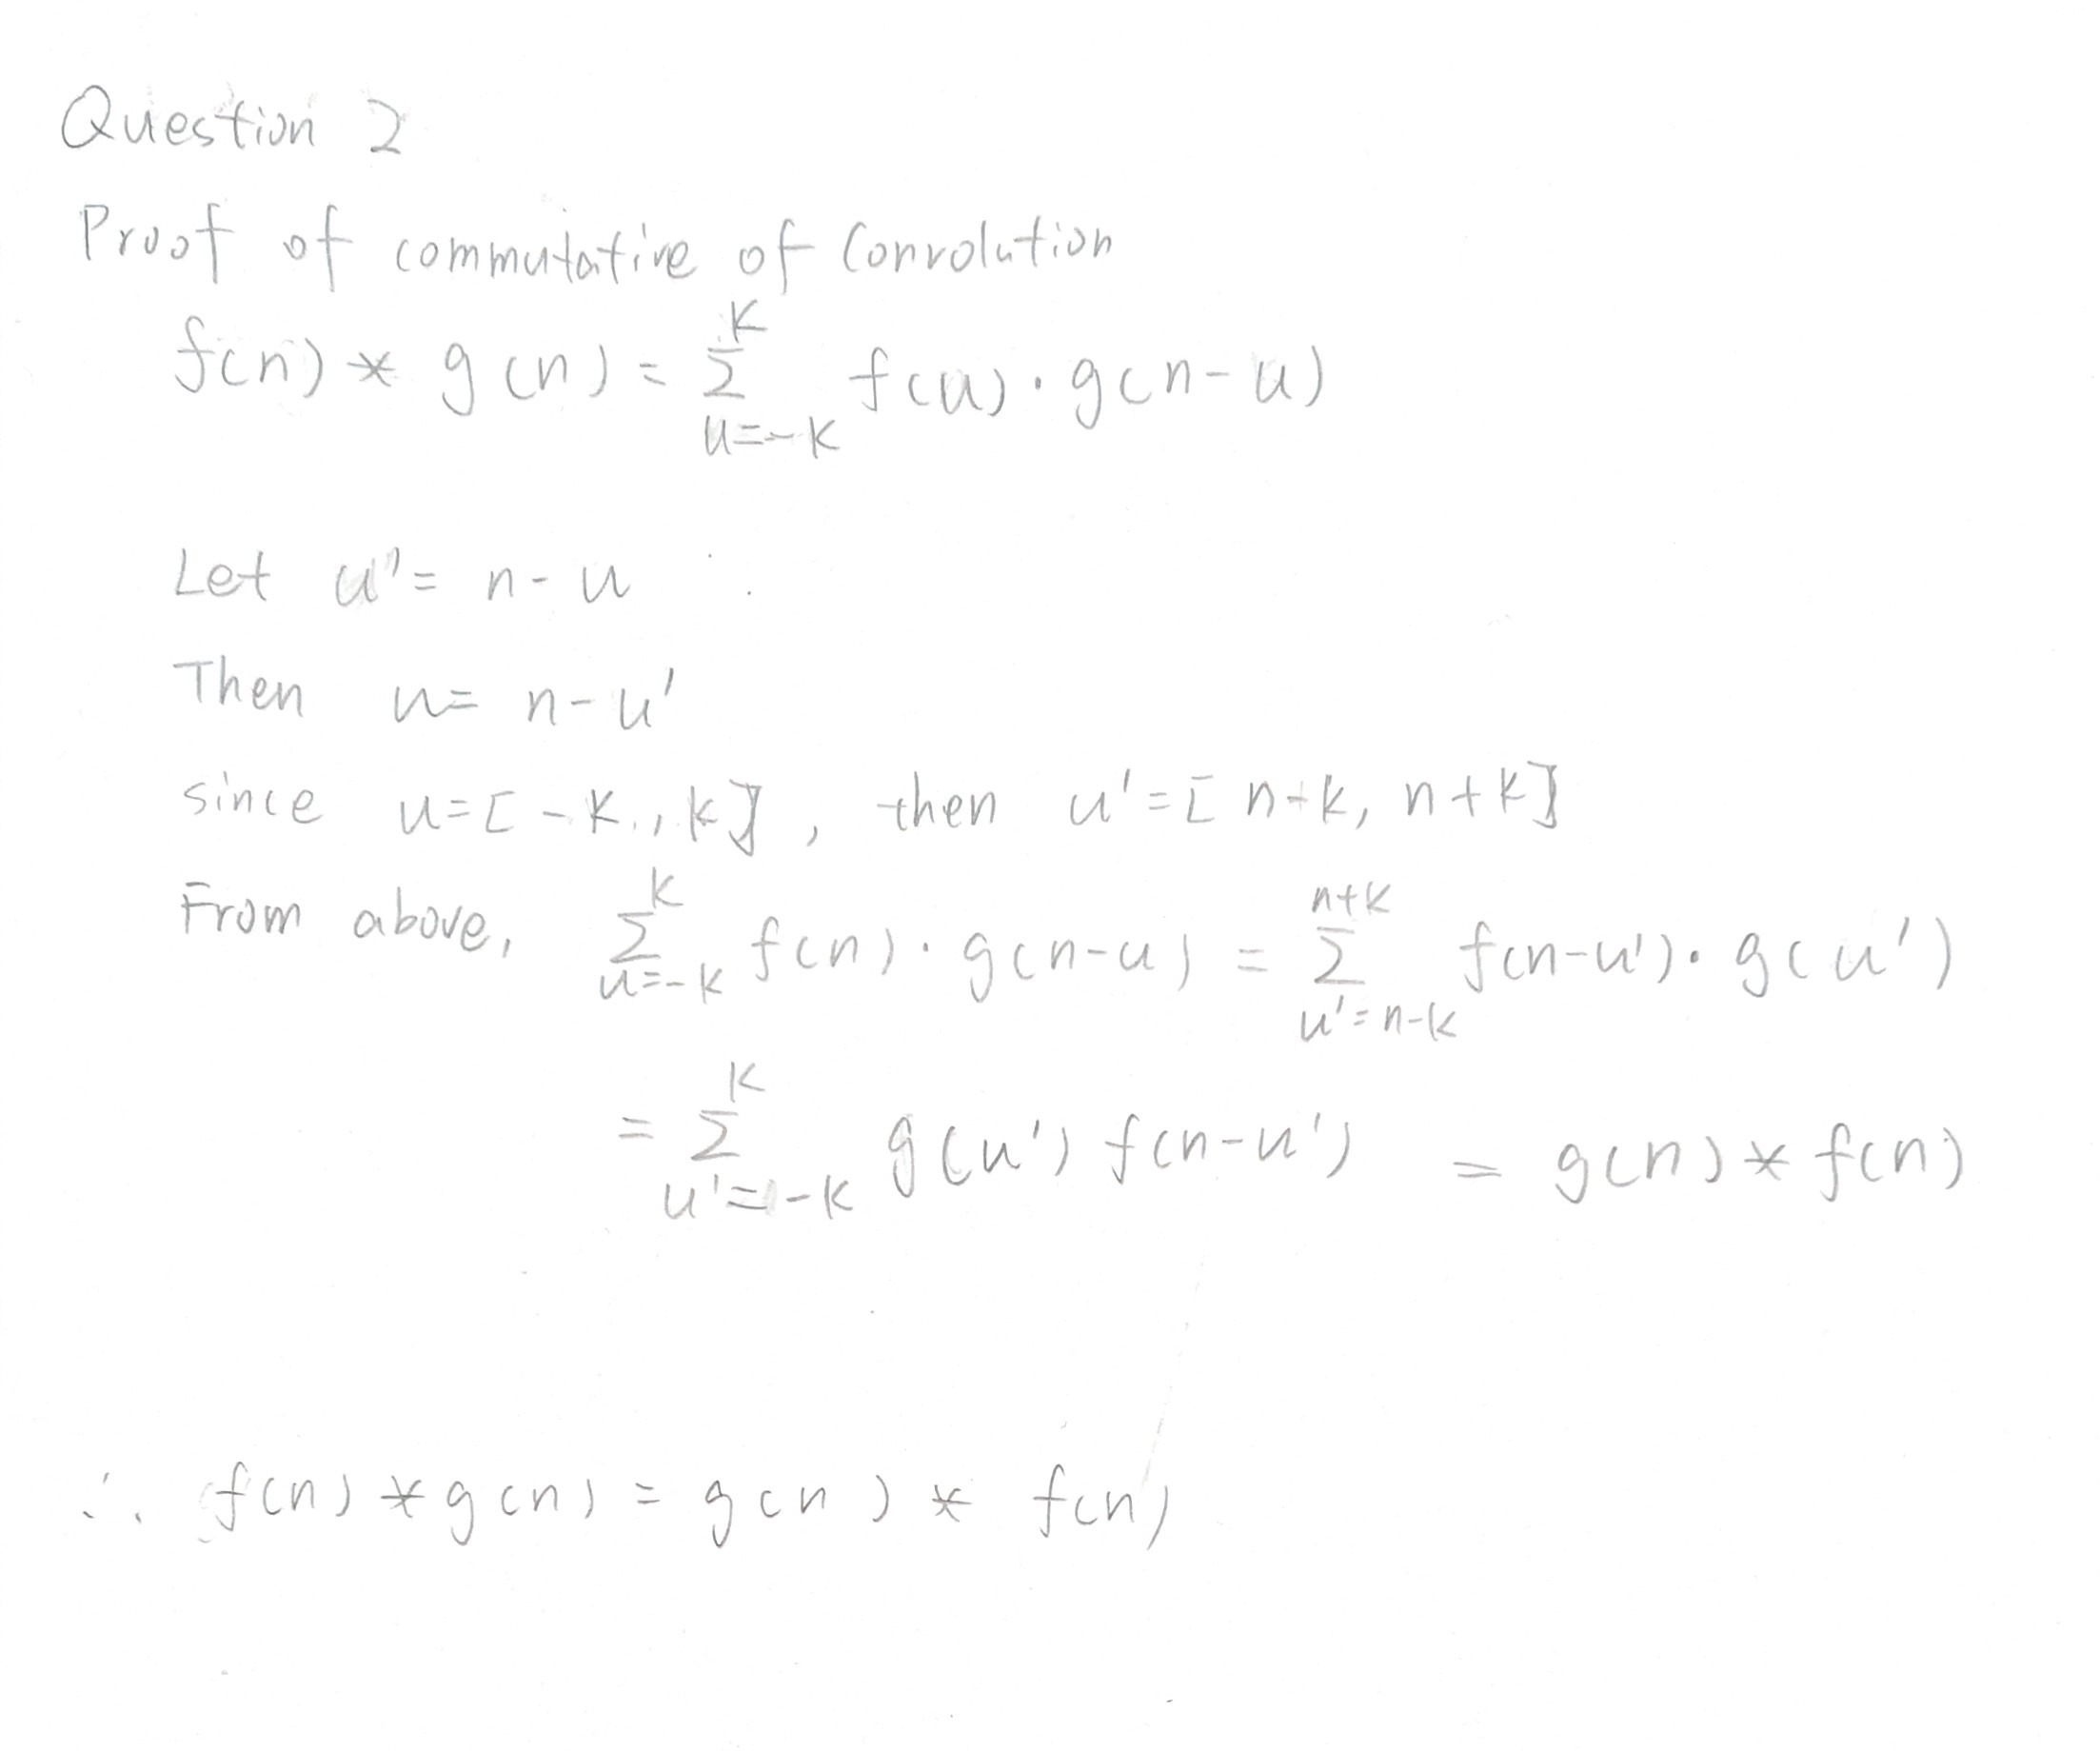 Question 2
Proof of commutative of Convolution
f(n) * g(n) = Σ_{u=-K}^{K} f(u) · g(n-u)
Let u' = n - u
Then u = n - u'
since u = [-K, K], then u' = [n-k, n+k]
From above, Σ_{u=-K}^{K} f(n) · g(n-u) = Σ_{u'=n-k}^{n+k} f(n-u') · g(u')
= Σ_{u'=-K}^{K} g(u') f(n-u') = g(n) * f(n)
∴ f(n) * g(n) = g(n) * f(n)